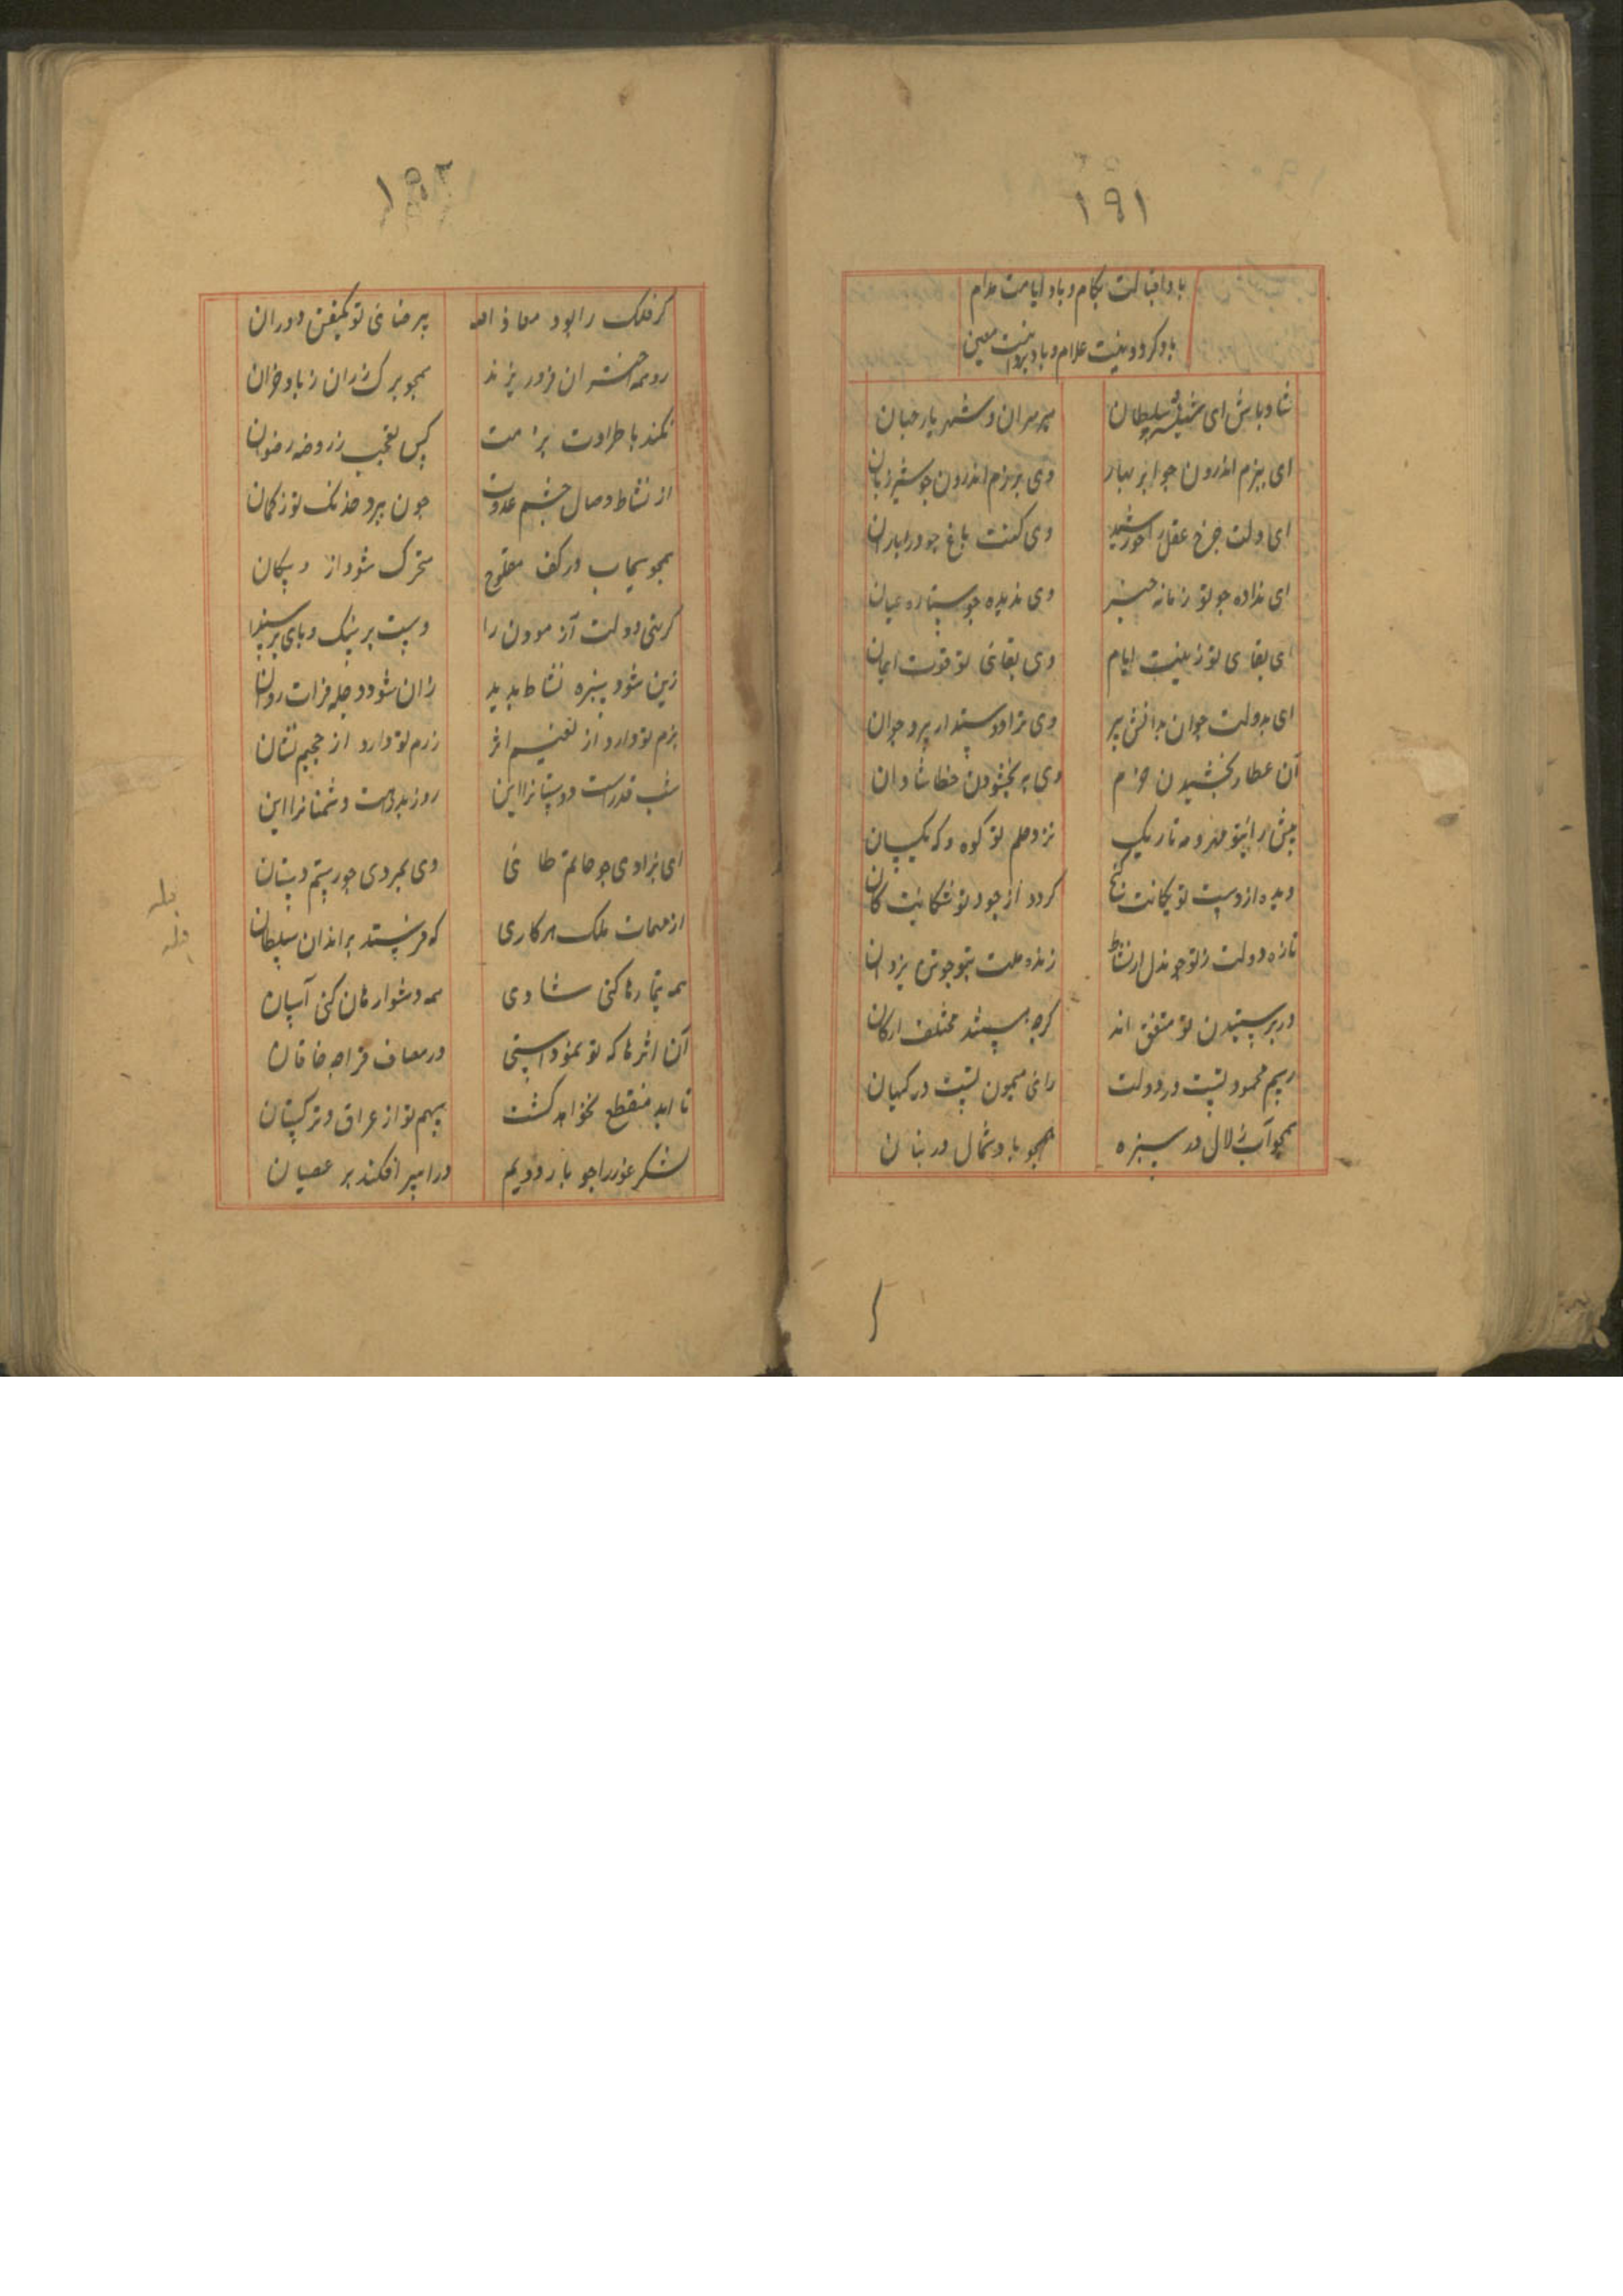 ۱۹۱
باد اقبالت بکام و باد ایامت مدام
باد کردونت غلام و باد یزدانت معین
شاد باش ای سلطان میر میران و شهریار جهان
ای ببزم اندرون جو ابر بهار وی برزم اندرون جو شیر ژیان
ای دلت جرخ عقل را خورشید وی کفت باغ جود را باران
ای نداده جو تو زمانه خبر وی ندیده جو تو ستاره عیان
ای بقای تو زینت ایام وی بقای تو قوت ایمان
ای بدولت جوان بدانش پیر وی ترا دوستدار پیر و جوان
آن عطا بخشیدن خرم وی به بخشودن خطا شادان
پیش رای تو مهر و مه تاریک نزد حلم تو کوه و که یکسان
دیده از دست تو کانت کنج کردد از جود تو کان
تازه دولت ز تو جو دل ز نشاط زنده ملت بتو جو تن بروان
در پرستیدن تو متفق اند کرجه هستند مختلف ارکان
رسم محمود تست در دولت رای میمون تست در کیهان
همجو آب زلال در سبزه همجو باد شمال در بستان
۱۹۲
کر فلک را بود معاذ الله بی رضای تو یکنفس دوران
رو همه اختران فرو ریزند همجو برک رزان ز باد خزان
نکند با طراوت بزمت کس تعجب ز روضه رضوان
از نشاط وصال جشم عدوت جون بپرد خدنک تو ز کمان
همجو سیماب در کف مفلوج متحرک شود از و پیکان
کر بنی دولت آزمودن را دست بر سنک و پای بر سندان
زین شود سبزه نشاط بدید زان شود دجله فرات روان
بزم تو دارد از نعیم اثر رزم تو دارد از جحیم نشان
شب قدرست دوستانرا این روز بدرست دشمنانرا این
ای برادی جو حاتم طائی وی بمردی جو رستم دستان
از مهمات ملک هر کاری که فرستد براندان سلطان
همه تیمارها کنی شادی همه دشوارهان کنی آسان
آن اثرها که تو نمودستی در مصاف قراجه خاقان
تا ابد منقطع نخواهد کشت سهم تو از عراق و ترکستان
لشکر غزرا جو بار دویم در اسپر افکند بر عصیان